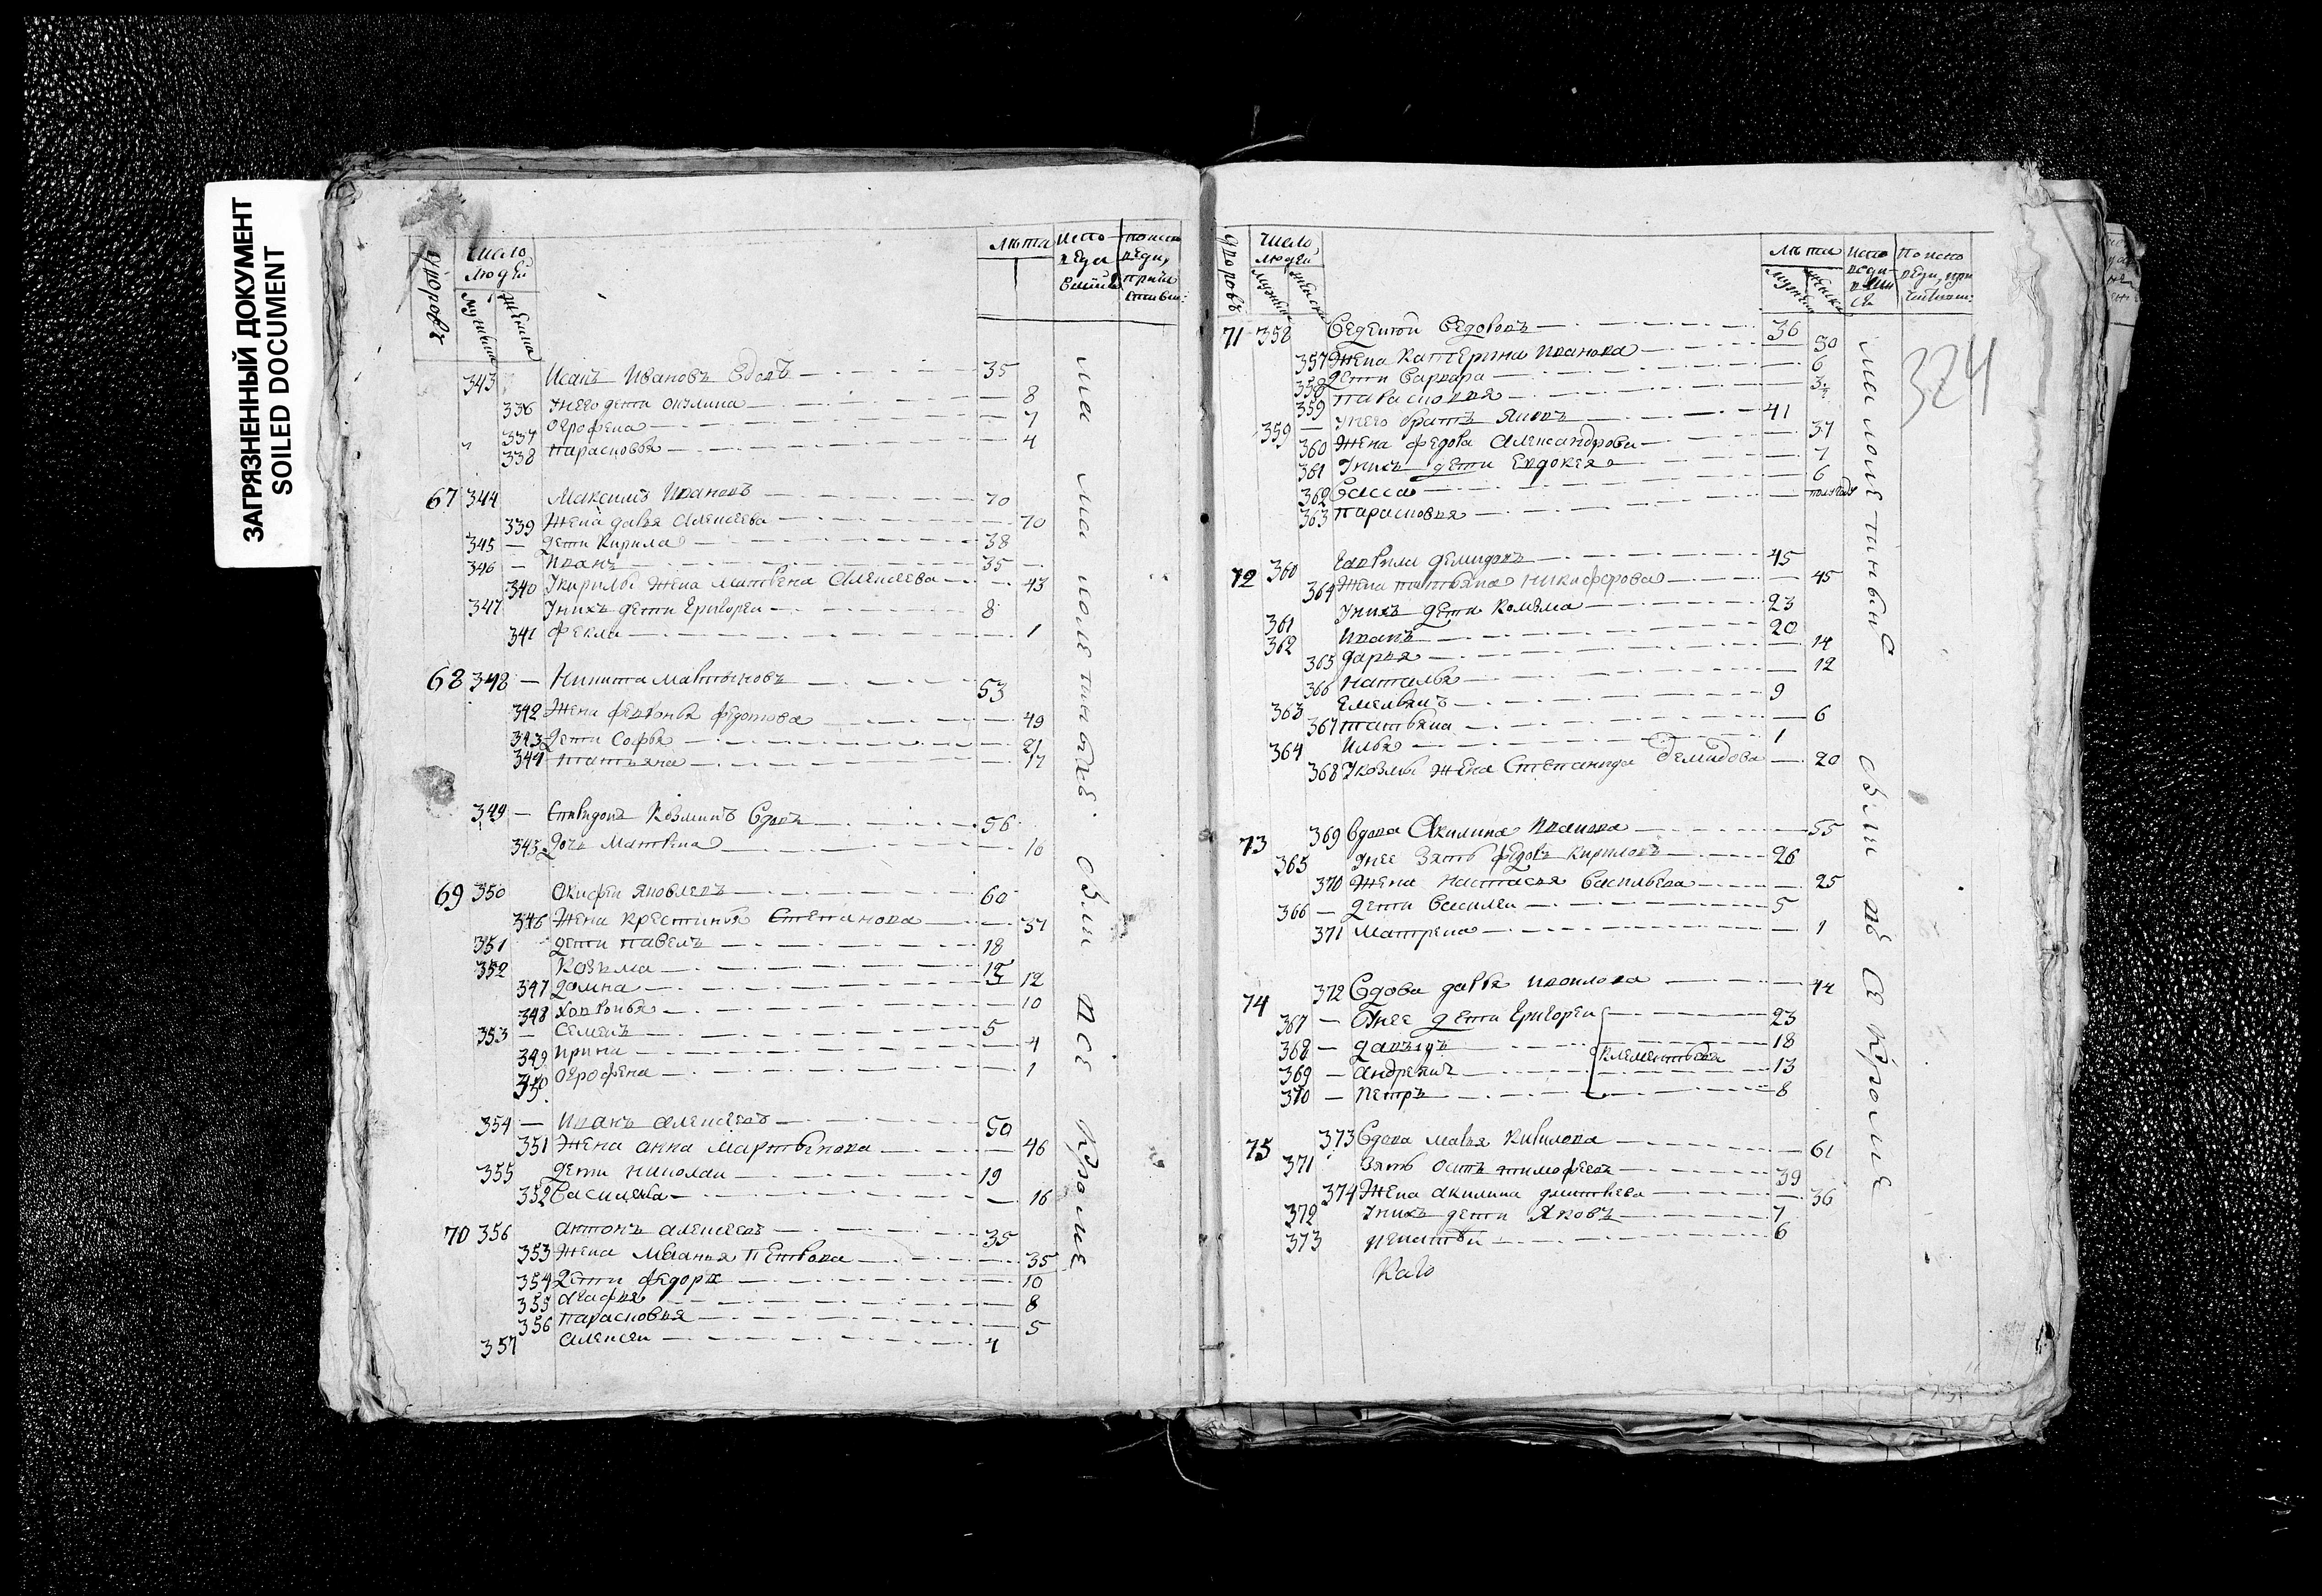 ЗАГРЯЗНЕННЫЙ ДОКУМЕНТ
SOILED DOCUMENT
дворовъ
Число людей
мужеска женска
лѣта
343 Исакъ Ивановъ Вдовъ 35
336 Унего дети окулина 8
337 огрофена 7
338 парасковья 4
67 344 Максимъ Ивановъ 70
339 Жена дарья алексеева 70
345 дети Кирила 38
346 Иванъ 35
340 Укирилы жена Матвена Алексеева 43
347 Унихъ дети Григореи 8
341 фекла 1
68 348 Никита Мартыновъ 53
342 Жена февронья федотова 49
343 дети Софья 21
344 татьяна 17
349 Спиридонъ Козминъ Вдовъ 56
345 дочь Матвена 16
69 350 Окифеи яковлевъ 60
346 Жена крестинья Степанова 37
351 дети павелъ 18
352 Козьма 15
347 домна 12
348 Ховронья 10
353 Семенъ 5
349 ирина 4
350 огрофена 1
354 Иванъ алексеевъ 50
351 Жена анна мартынова 46
355 дети николаи 19
352 Василиса 16
70 356 антонъ алексеевъ 35
353 Жена Маланья Петрова 35
354 дети федора 10
355 агафья 8
356 парасковья 5
357 алексеи 4
дворовъ
Число людей
мужеска женска
лѣта
мужеска женска
324
71 358 Федотовъ 36
357 Жена катерина Иванова 30
358 дети варвара 6
359 парасковья 3
359 Унего братъ яковъ 41
360 Жена федора Александрова 37
361 Унихъ дети Евдокея 7
362 Васса 6
363 парасковья полугоду
72 360 Гаврила демидовъ 45
364 Жена татьяна никифорова 45
361 Унихъ дети козма 23
362 Иванъ 20
365 дарья 14
366 наталья 12
363 Емельянъ 9
367 татьяна 6
364 Илья 1
368 Укозмы жена Степанида демидова 20
73 369 Вдова Акилина Иванова 55
365 Унее зять федоръ кириловъ 26
370 Жена настасья Васильева 25
366 дети Василеи 5
371 Матрена 1
74 372 Вдова дарья 44
367 Унее дети Григореи 23
368 давыдъ 18
369 андреянъ 13
клементьева
370 Петръ 8
75 373 Вдова марья Кирилова 61
371 зять осипъ тимофеевъ 39
374 Жена акилина дмитреева 36
372 Унихъ дети яковъ 7
373 игнатеи 6